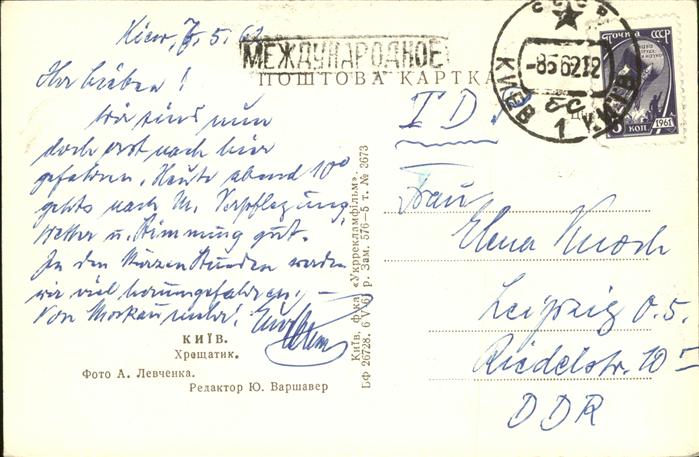 Kiew, 7.5.62
МЕЖДУНАРОДНОЕ
ПОШТОВА КАРТКА
СССР
КИЇВ
-8562112
1
ПОЧТА СССР
КОП.
1961
Ihr Lieben!
Wir sind nun
doch erst nach hier
gefahren. Heute abend 10⁰⁰
gehts nach M. Verpflegung,
Wetter u. Stimmung gut.
In den kurzen Stunden werden
wir viel herumgefahren, –
Von Moskau mehr!
КИЇВ.
Хрещатик.
Фото А. Левченка.
Редактор Ю. Варшавер
Київ, ф-ка «Укррекламфільм».
БФ 26728. 6 V 61 р. Зам. 576—5 т. № 2673
Frau
Elena Knoch
Leipzig O.5.
Riedelstr. 10
DDR